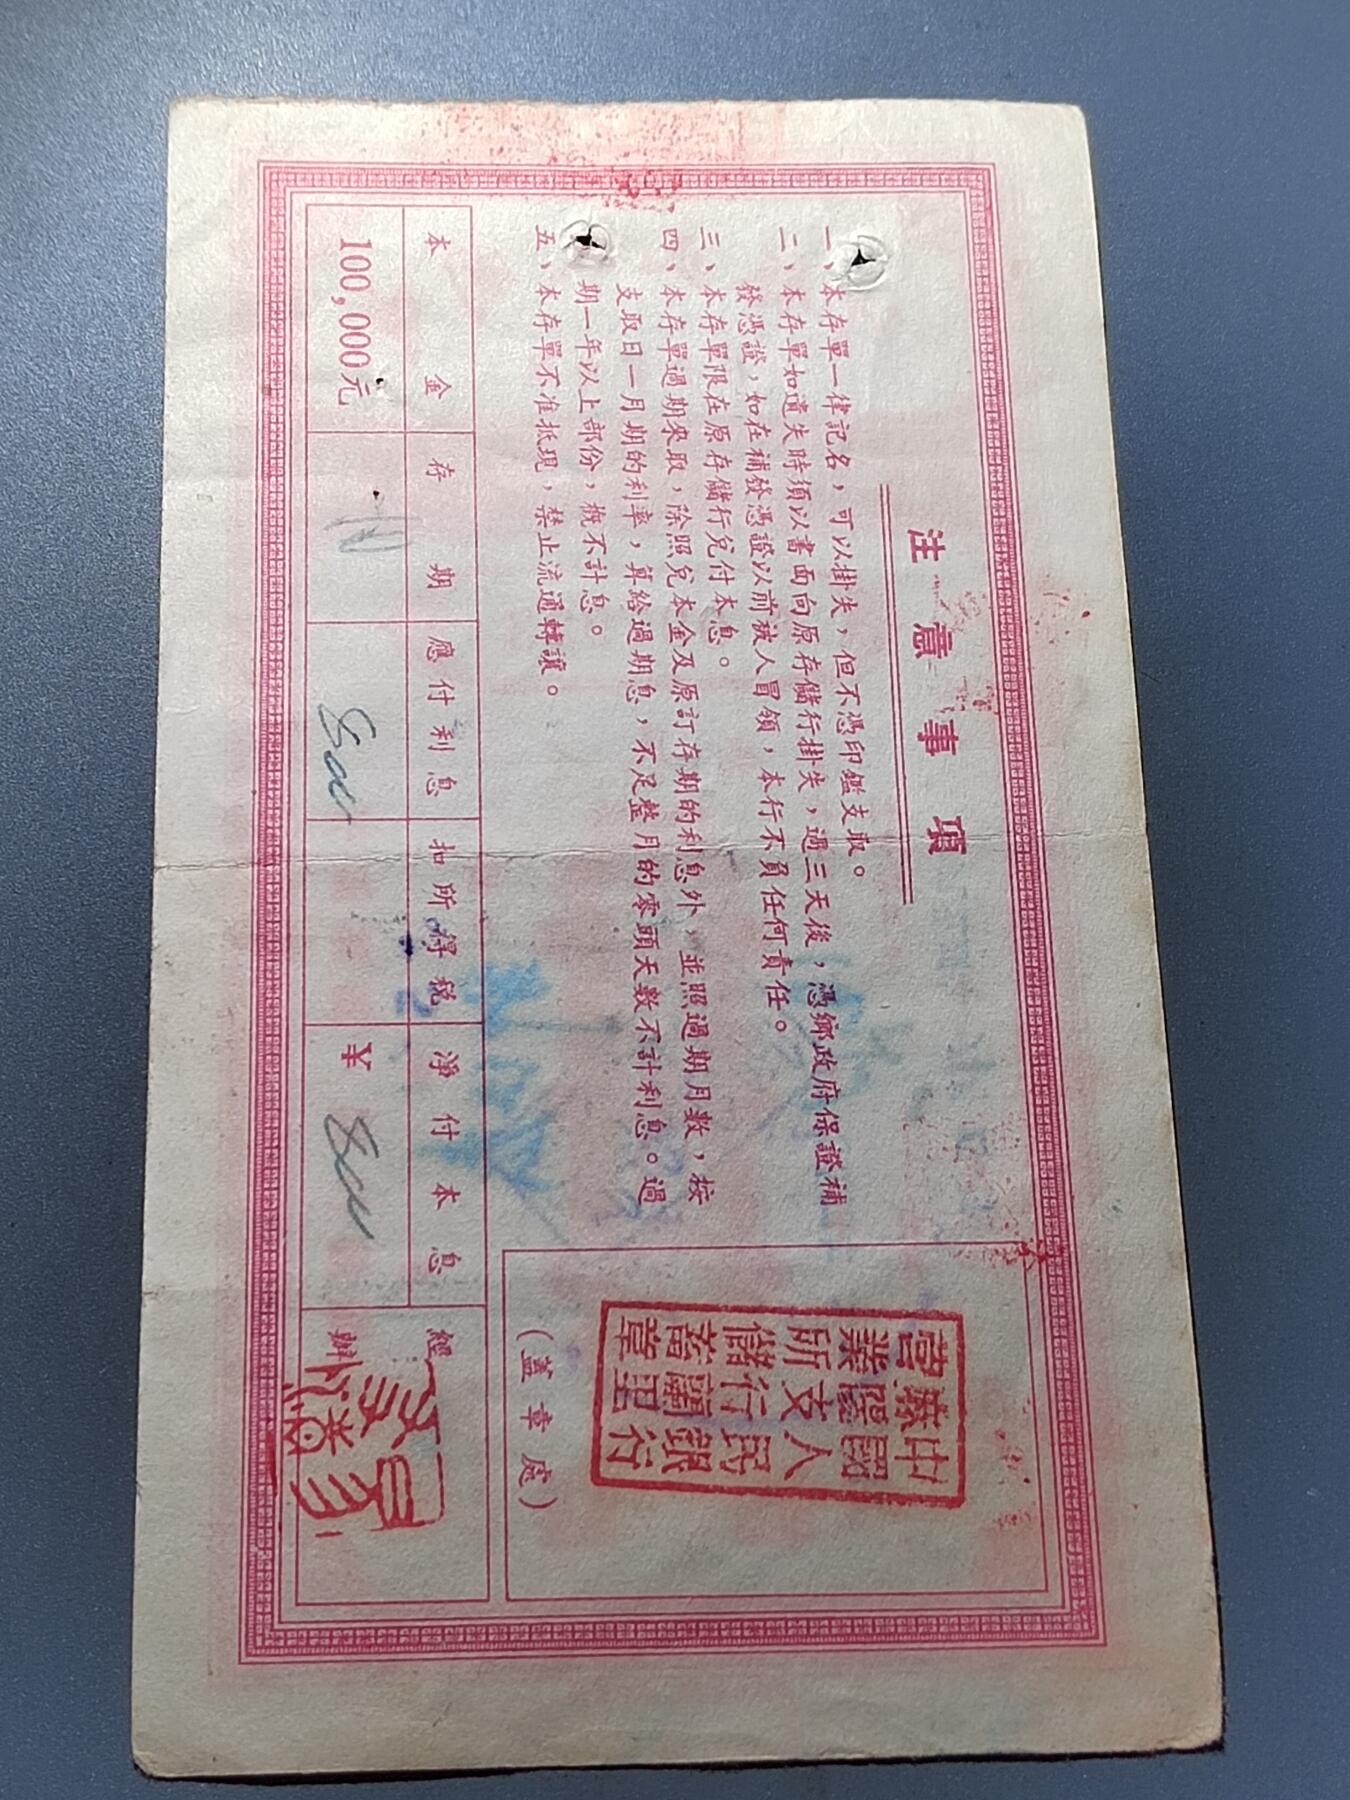 注意事項
一、本存單一律記名，可以掛失，但不憑印鑑支取。
二、本存單如遺失時須以書面向原存儲行掛失，過三天後，憑鄉政府保證補
發憑證，如在補發憑證以前被人冒領，本行不負任何責任。
三、本存單限在原存儲行兌付本息。
四、本存單過期來取，除照兌本金及原訂存期的利息外，並照過期月數，按
支取日一月期的利率，算給過期息，不足整月的零頭天數不計利息。過
期一年以上部份，概不計息。
五、本存單不准抵現，禁止流通轉讓。
中國人民銀行
支行
營業所儲蓄章
(蓋章處)
本金 存期 應付利息 扣所得稅 淨付本息 經辦
100,000元 800 ¥ 800